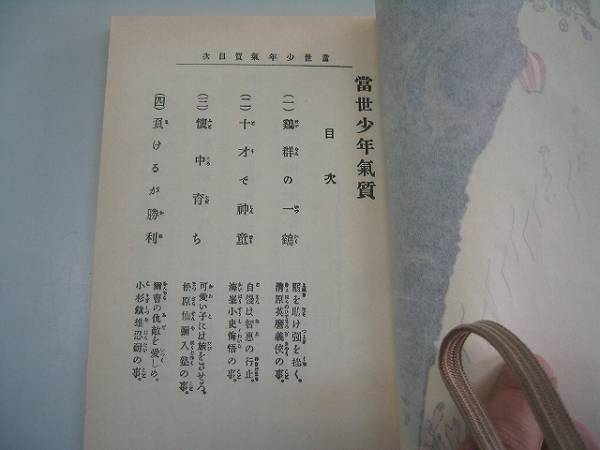 次目質氣年少世當
當世少年氣質
目次
(一)鷄群の一鶴
弱を助け强を挫く。
淸原英麿義俠の事。
(二)十才で神童
自慢は智惠の行止。
海峯小史悔悟の事。
(三)懷中育ち
可愛い子には旅をさせろ。
松原仙彌入塾の事。
(四)負けるが勝利
爾曹の仇敵を愛しめ。
小杉鎭雄忍耐の事。